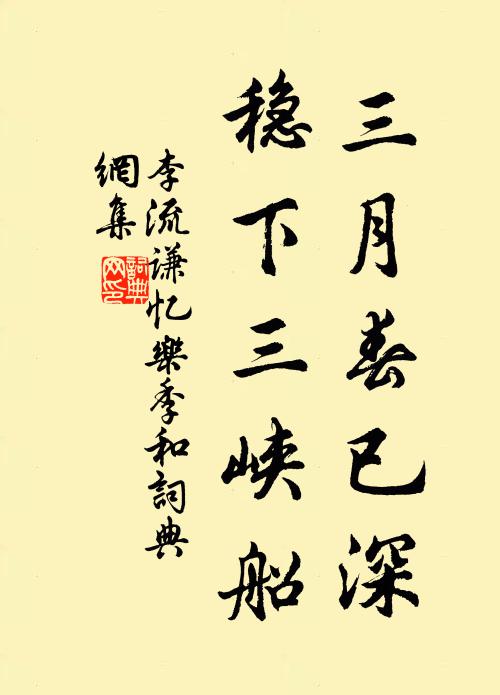 三月春已深
穏下三峡船
李流谦忆樂季和詞典
網集
詞典
网印